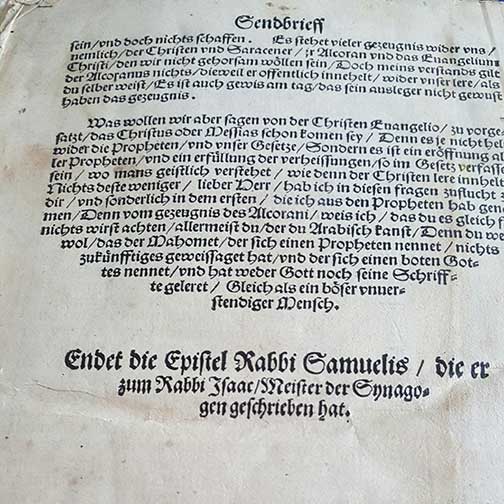 Sendbrieff
sein/vnd doch nichts schaffen. Es stehet vieler gezeugnis wider vns/
nemlich/der Christen vnd Saracener/jr Alcoran vnd das Euangelium
Christi/den wir nicht gehorsam wöllen sein/Doch meins verstands gilt
der Alcoranus nichts/dieweil er offentlich innehelt/wider vnser lere/als
du selber weist/Es ist auch gewis am tag/das sein ausleger nicht gewust
haben das gezeugnis.
Was wollen wir aber sagen von der Christen Euangelio/zu
satzt/das Christus oder Messias schon komen sey/Denn es je nicht
wider die Propheten/vnd vnser Gesetze/Sondern es ist ein eröffnung
ler Propheten/vnd ein erfüllung der verheissungen/so im Gesetz
sein/wo mans geistlich verstehet/wie denn der Christen lere
Nichts deste weniger/lieber Herr/hab ich in diesen fragen zuflucht
dir/vnd sonderlich in dem ersten/die ich aus den Propheten hab
men/Denn vom gezeugnis des Alcorani/weis ich/das du es gleich
nichts wirst achten/allermeist du/der du Arabisch kanst/Denn du
wol/das der Mahomet/der sich einen Propheten nennet/nichts
zukünfftiges geweissaget hat/vnd der sich einen boten Got-
tes nennet/vnd hat weder Gott noch seine Schriff-
te geleret/Gleich als ein böser vnuer-
stendiger Mensch.
Endet die Epistel Rabbi Samuelis/die er
zum Rabbi Isaac/Meister der Synago-
gen geschrieben hat.